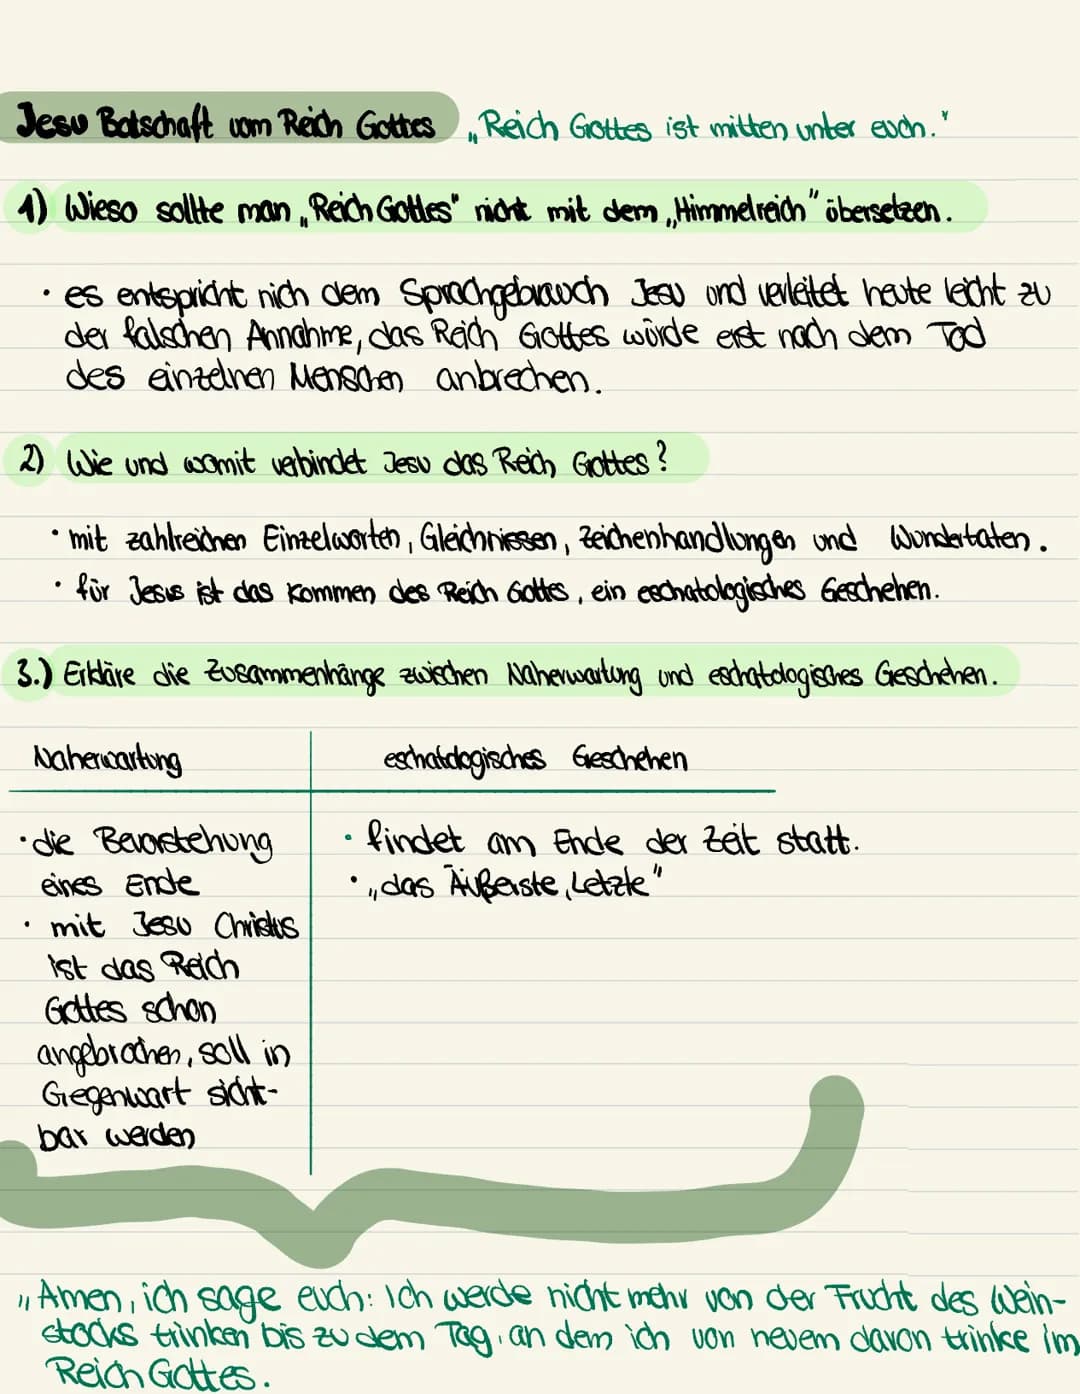 Jesu Botschaft vom Reich Gottes „Reich Gottes ist mitten unter euch."
1) Wieso sollte man „Reich Gottes" nicht mit dem „Himmelreich" übersetzen.
• es entspricht nich dem Sprachgebrauch Jesu und verleitet heute leicht zu
der falschen Annahme, das Reich Gottes würde erst nach dem Tod
des einzelnen Menschen anbrechen.
2) Wie und womit verbindet Jesu das Reich Gottes?
• mit zahlreichen Einzelworten, Gleichnissen, Zeichenhandlungen und Wundertaten.
• für Jesus ist das Kommen des Reich Gottes, ein eschatologisches Geschehen.
3.) Erkläre die Zusammenhänge zwischen Naherwartung und eschatologisches Geschehen.
Naherwartung
• die Bevorstehung
eines Ende
• mit Jesu Christus
ist das Reich
Gottes schon
angebrochen, soll in
Gegenwart sicht-
bar werden
eschatologisches Geschehen
• findet am Ende der Zeit statt.
• „das Äußerste, Letzte"
„Amen, ich sage euch: Ich werde nicht mehr von der Frucht des Wein-
stocks trinken bis zu dem Tag, an dem ich von neuem davon trinke im
Reich Gottes.